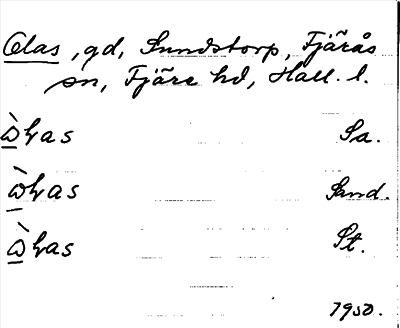 Olas, gd, Sundstorp, Fjärås
sn, Fjäre hd, Hall. l.
ὼɫas Sa.
ὼɫas Sand.
ὼɫas St.
1950.